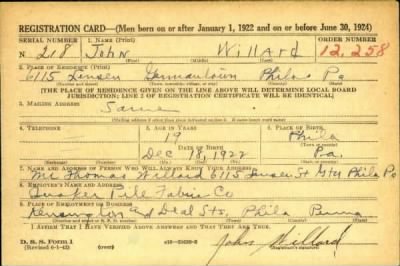 REGISTRATION CARD—(Men born on or after January 1, 1922 and on or before June 30, 1924)
SERIAL NUMBER 1. NAME (Print) ORDER NUMBER
N 218 John Willard 12,258
(First) (Middle) (Last)
2. PLACE OF RESIDENCE (Print)
6115 Germantown Phila Pa
(Number and street) (Town, township, village, or city) (County) (State)
[THE PLACE OF RESIDENCE GIVEN ON THE LINE ABOVE WILL DETERMINE LOCAL BOARD
JURISDICTION; LINE 2 OF REGISTRATION CERTIFICATE WILL BE IDENTICAL]
3. MAILING ADDRESS
Same
[Mailing address if other than place indicated on line 2. If same insert word same]
4. TELEPHONE 5. AGE IN YEARS 6. PLACE OF BIRTH
19 Phila
DATE OF BIRTH (Town or county)
Dec 18, 1922 Pa.
(Exchange) (Number) (Mo.) (Day) (Yr.) (State or country)
7. NAME AND ADDRESS OF PERSON WHO WILL ALWAYS KNOW YOUR ADDRESS
Mr Thomas Willard 6115 St Gtn Phila Pa
8. EMPLOYER'S NAME AND ADDRESS
Quaker Pile Fabric Co
9. PLACE OF EMPLOYMENT OR BUSINESS
Kensington and Sts, Phila Penna
(Number and street or R. F. D. number) (Town) (County) (State)
I AFFIRM THAT I HAVE VERIFIED ABOVE ANSWERS AND THAT THEY ARE TRUE.
D. S. S. Form 1
(Revised 6-1-42)
John Willard
(Registrant's signature)